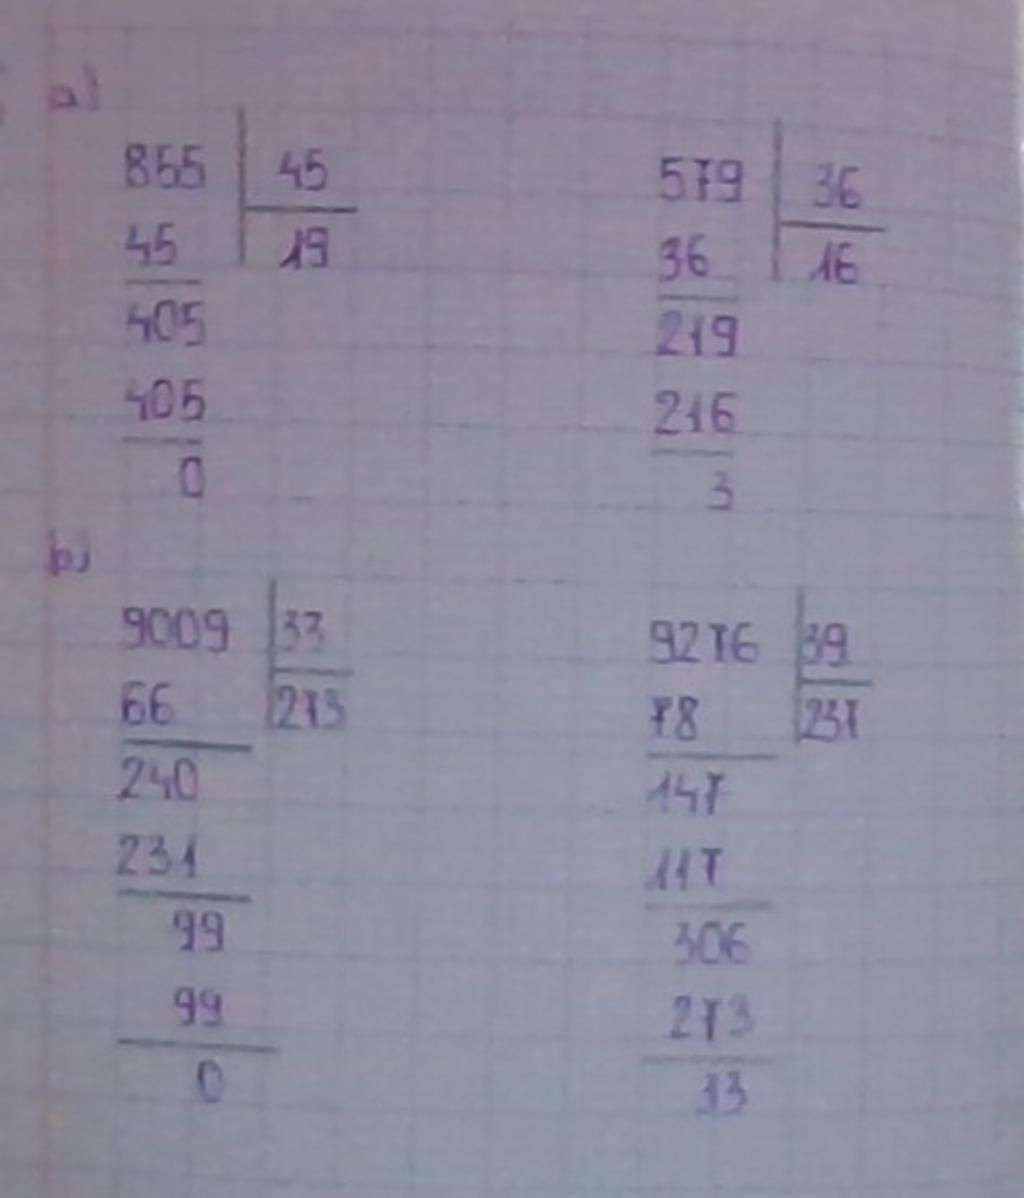 a)
855 45
45 19
405
405
0
579 36
36 16
219
216
3
b)
9009 33
66 273
240
231
99
99
0
9276 39
78 237
147
117
306
273
33